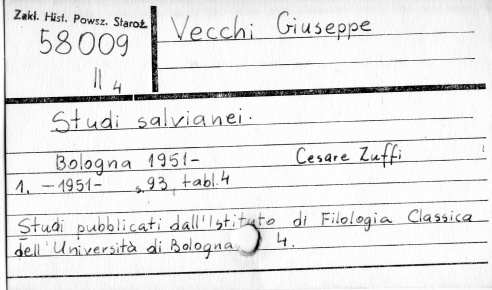 Zakł. Hist. Powsz. Staroż.
58009
II 4
Vecchi Giuseppe
Studi salvianei.
Bologna 1951- Cesare Zuffi
1. -1951- s. 93, tabl. 4
Studi pubblicati dall'Istituto di Filologia Classica
dell'Università di Bologna 4.